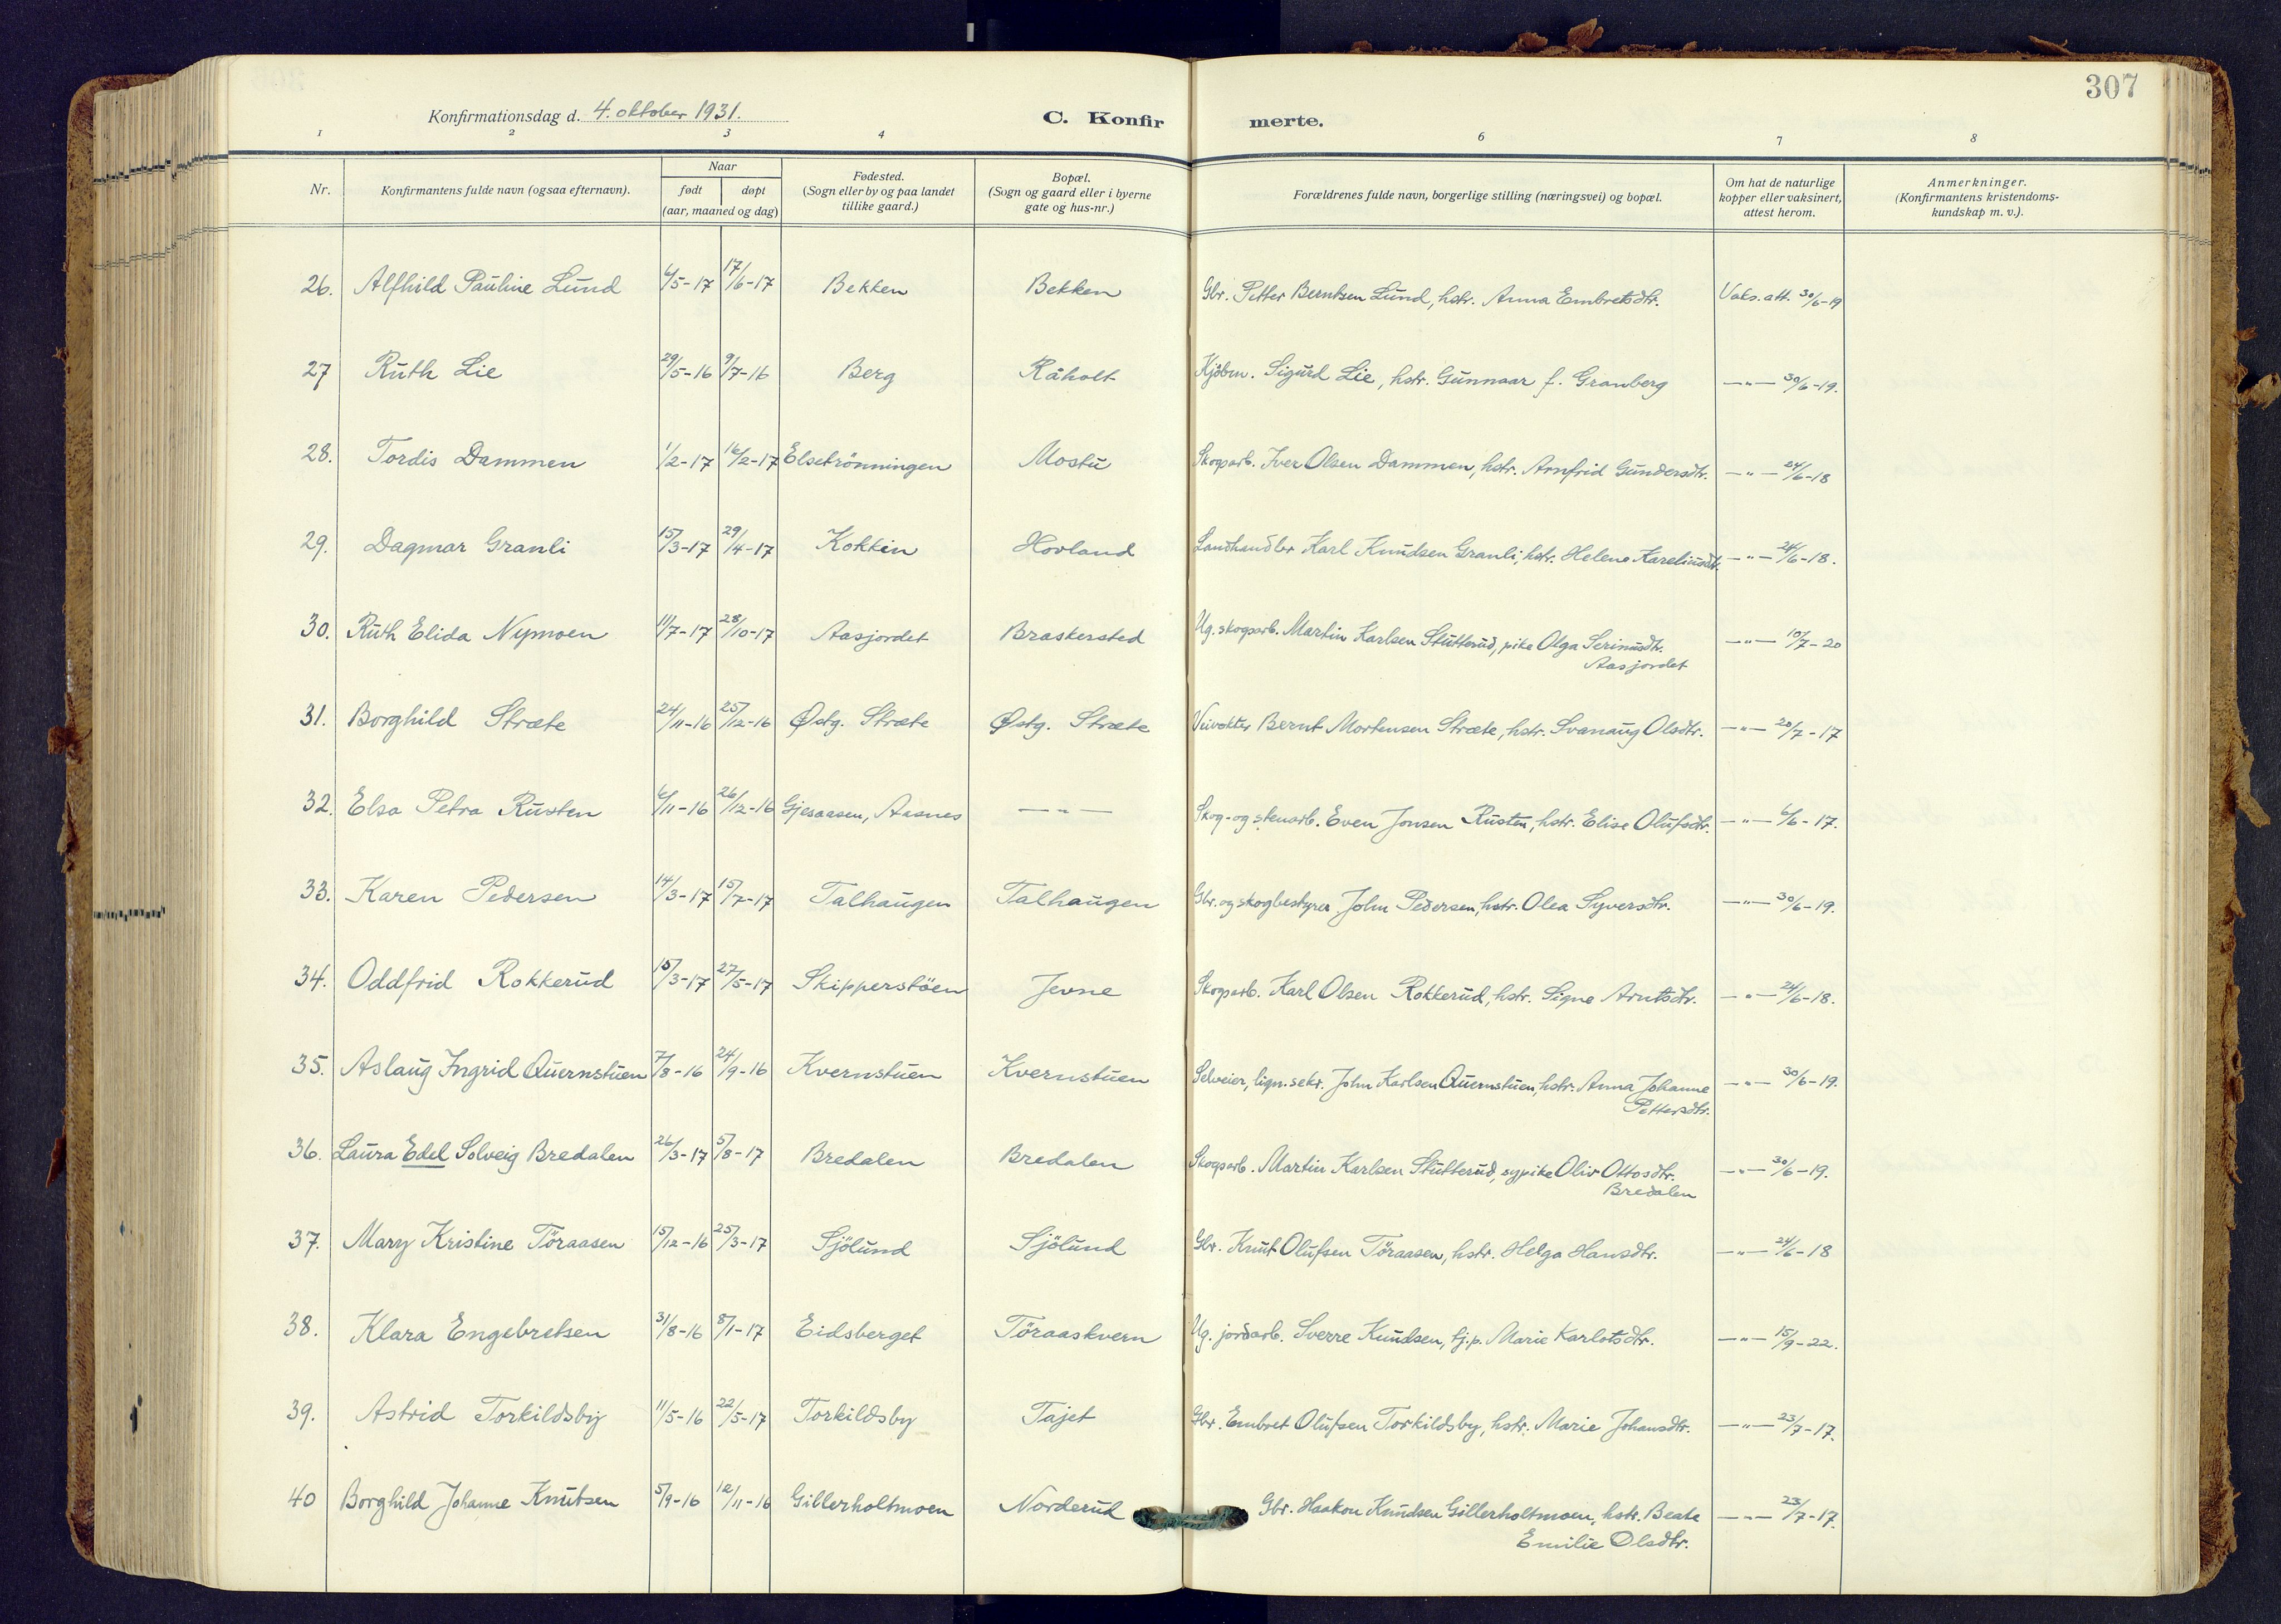 307
Konfirmationsdag d. 4. oktober 1931.
C. Konfir merte.
1 2 3 4 6 7 8
Nr.
Konfirmantens fulde navn (ogsaa efternavn).
Naar
født døpt
(aar, maaned og dag)
Fødested.
(Sogn eller by og paa landet
tillike gaard.)
Bopæl.
(Sogn og gaard eller i byerne
gate og hus-nr.)
Forældrenes fulde navn, borgerlige stilling (næringsvei) og bopæl.
Om hat de naturlige
kopper eller vaksinert,
attest herom.
Anmerkninger.
(Konfirmantens kristendoms-
kundskap m. v.).
26. Alfhild Pauline Lund 6/5-17 17/6-17 Bekken Bekken Gbr. Petter Berntsen Lund, hstr. Anna Embretsdtr. Vaks. att. 30/6-19
27 Ruth Lie 29/5-16 9/7-16 Berg Råholt Kjøbm. Sigurd Lie, hstr. Gunnaar f. Granberg —"— 30/6-19.
28. Tordis Dammen 1/2-17 16/2-17 Elsetrönningen Mostu Skogsarb. Iver Olsen Dammen, hstr. Arnfrid Gundersdtr. —"— 24/6-18
29. Dagmar Granli 15/3-17 29/4-17 Kokkin Hovland Landhandler Karl Knudsen Granli, hstr. Helene Karelinusdtr. —"— 24/6-18.
30. Ruth Elida Nymoen 11/7-17 28/10-17 Aasjordet Braskersted Ug. skogsarb. Martin Karlsen Stutterud, pike Olga Serinusdtr. —"— 10/7-20
Aasjordet
31. Borghild Stræte 24/11-16 25/12-16 Østg. Stræte Østg. Stræte Veivokter Bernt Mortensen Stræte, hstr. Svanaug Olsdtr. —"— 20/7-17
32. Elsa Petra Rusten 6/11-16 26/12-16 Gjesaasen, Aasnes —"— Skog- og stenarb. Even Jonsen Rusten, hstr. Elise Olufsdtr. —"— 6/6-17.
33. Karen Pedersen 14/3-17 15/7-17 Talhaugen Talhaugen Gbr. og skogbestyrer John Pedersen, hstr. Olea Syversdtr. —"— 30/6-19.
34. Oddfrid Rokkerud 15/3-17 27/5-17 Skipperstöen Jevne Skogsarb. Karl Olsen Rokkerud, hstr. Signe Arntsdtr. —"— 24/6-18.
35. Aslaug Ingrid Quernstuen 7/8-16 24/9-16 Kvernstuen Kvernstuen Selveier, lign. sekr. John Karlsen Quernstuen, hstr. Anna Johanne —"— 30/6-19.
Pettersdtr.
36. Laura Edel Solveig Bredalen 26/3-17 5/8-17 Bredalen Bredalen Skogsarb. Martin Karlsen Stutterud, sypike Oliv Ottosdtr. —"— 30/6-19.
Bredalen
37. Mary Kristine Töraasen 15/12-16 25/3-17 Sjölund Sjölund Gbr. Knut Olufsen Töraasen, hstr. Helga Hansdtr. —"— 24/6-18
38. Klara Engebretsen 31/8-16 8/1-17 Eidsberget Töraaskvern Ug. jordarb. Sverre Knudsen, tj.p. Marie Karlotsdtr. —"— 15/9-22.
39. Astrid Torkildsby 11/5-16 22/5-17 Torkildsby Tajet Gbr. Embret Olufsen Torkildsby, hstr. Marie Johansdtr. —"— 23/7-17.
40 Borghild Johanne Knutsen 5/9-16 12/11-16 Gillerholtmoen Norderud Gbr. Haakon Knudsen Gillerholtmoen, hstr. Beate —"— 23/7-17.
Emilie Olsdtr.